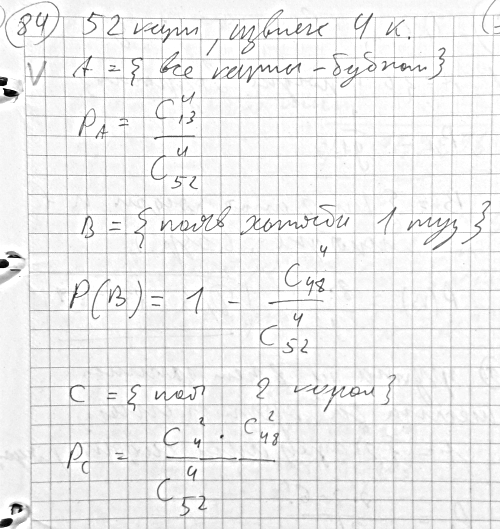 84 52 карт, извлек 4 к.
V A = { все карты – бубном }
P_A = C_13^4 / C_52^4
B = { появ хотяби 1 туз }
P(B) = 1 - C_48^4 / C_52^4
C = { поя 2 короля }
P_C = C_4^2 · C_48^2 / C_52^4